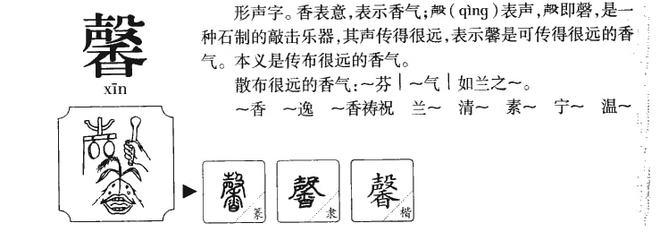 馨
xīn
形声字。香表意，表示香气；殸(qìng)表声，殸即磬，是一
种石制的敲击乐器，其声传得很远，表示馨是可传得很远的香
气。本义是传布很远的香气。
散布很远的香气：～芬｜～气｜如兰之～。
～香 ～逸 ～香祷祝 兰～ 清～ 素～ 宁～ 温～
馨 篆
馨 隶
馨 楷